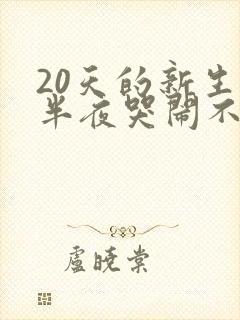 20天的新生
半夜哭闹不
卢晓棠